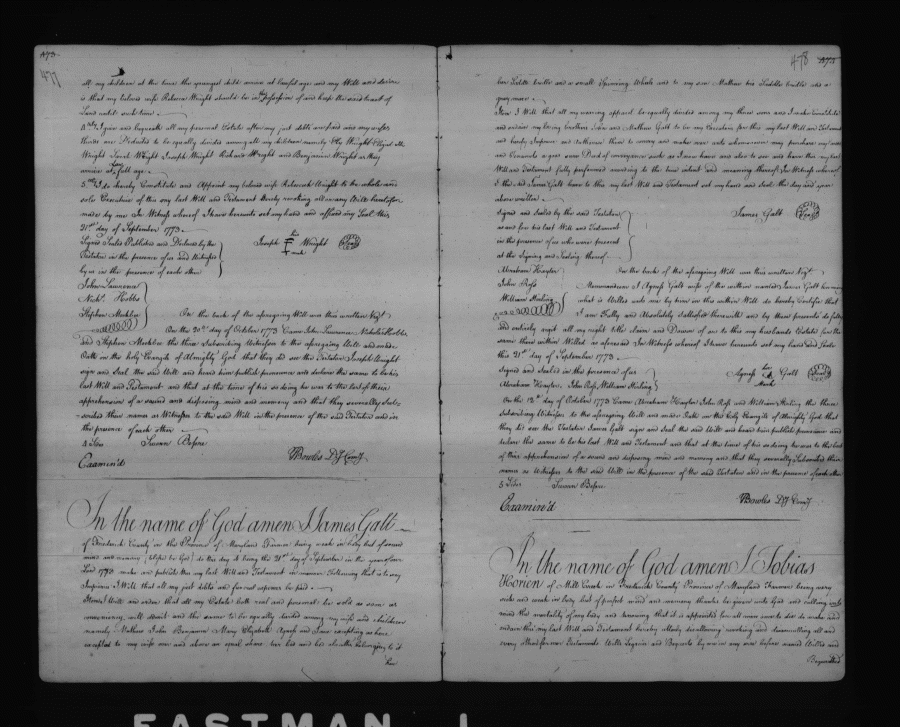 473
477
all my children at the time the youngest child arrive at lawful age and my Will and desire
is that my beloved wife Rebecca Wright should be in the possession of and keep the said tract of
Land untill such time
I give and bequeath all my personal Estate after my just debts are paid and my wifes
thirds are Deducted to be equally divided among all my children namely
Wright Jacob Wright Joseph Wright Wright and Benjamin Wright as they
arrive at full age
I do hereby Constitute and Appoint my beloved wife Wright to be whole and
sole Executrix of this my last Will and Testament hereby revoking all or any Wills heretofore
made by me In Witness whereof I have hereunto set my hand and affixed my Seal this
21st day of September 1773
Signed Sealed Published and Declared by the
Testator in the presence of us and Witnesses
by us in the presence of each other
Joseph his mark Wright Seal
John Lawrence
Nichs. Hobbs
Stephen
On the back of the aforegoing Will was thus written Vizt
On the 20th day of October 1773 Came John Lawrence Nicholas Hobbs
and Stephen the three Subscribing Witnesses to the aforegoing Will and made
Oath on the holy Evangels of Almighty God that they did see the Testator Joseph Wright
sign and Seal the said Will and heard him publish pronounce and declare the same to be his
last Will and Testament and that at the time of his so doing he was to the best of their
apprehension of a sound and disposing mind and memory and that they severally Sub-
-scribed their names as Witnesses to the said Will in the presence of the said Testator and in
the presence of each other
Sides Sworn Before
Examin'd
Bowles DY Comy
In the name of God amen I James Galt
of Frederick County in the Province of Maryland being weak in body but of sound
mind and memory blessed be God do this day it being the 21st day of September in the year of our
Lord 1773 make and publish this my last Will and Testament in manner following that is to say
Imprimis I Will that all my just debts and funeral expences be paid
Item I Will and order that all my Estate both real and personal be sold as soon as
conveniency will admit and the same to be equally divided among my wife and children
namely Mathew John Benjamin Mary Elizabeth Agness and Jean excepting as here
excepted to my wife one and above an equal share her bed and belonging to it
her
478
her Saddle bridle and a small Spinning Wheele and to my son Mathew his Saddle bridle and a
gray mare
Item I Will that all my wearing apparel be equally divided among my three sons and I make constitute
and ordain my loving brothers John and Mathew Galt to be my Executors for this my last Will and Testament
and hereby Impower and them to convey and make over unto whomsoever may purchase my
and a good Deed of conveyance such as I now have and also to see and have this my last
Will and Testament fully performed according to the true intent and meaning thereof In Witness whereof
I the said James Galt have to this my last Will and Testament set my hand and Seale the day and year
above written
Signed and Sealed by the said Testator
as and for his last Will and Testament
in the presence of us who were present
at the Signing and Sealing thereof
James Galt Seal
Abraham Hayter
John Ross
William
On the back of the aforegoing Will was thus written Vizt
Memorandum I Agness Galt wife of the within named James Galt
what is Willed unto me by him in this within Will do hereby Certifie that
I am Fully and Absolutely Satisfied therewith and by these presents do fully
and entirely quit all my right to Claim and Dower of in to this my husbands Estate
same therein Willed is aforesaid In Witness whereof I have hereunto set my hand and Seale
this 21st day of September 1773
Signed and Sealed in the presence of us
Abraham Hayter John Ross William
Agness her Mark Galt Seal
On the 12th day of October 1773 Came Abraham Hayter John Ross and William the three
Subscribing Witnesses to the aforegoing Will and made Oath on the holy Evangels of Almighty God that
they did see the Testator James Galt sign and Seal the said Will and heard him publish pronounce and
declare the same to be his last Will and Testament and that at the time of his so doing he was to the best
of their apprehension of a sound and disposing mind and memory and that they severally Subscribed their
names as Witnesses to the said Will in the presence of the said Testator and in the presence of each other
Sides Sworn Before
Examin'd
Bowles DY Comy
In the name of God amen I Tobias
Horien of Mill Creek in Frederick County Province of Maryland Farmer being very
sick and weak in body but of perfect mind and memory thanks be given unto God and calling unto
mind the mortality of my body and knowing that it is appointed for all men once to die do make and
ordain this my last Will and Testament hereby utterly disallowing revoking and disannulling all and
every other former Testaments Wills Legacies and Bequests by me in any wise before named Willed and
Bequeathed
EASTMAN